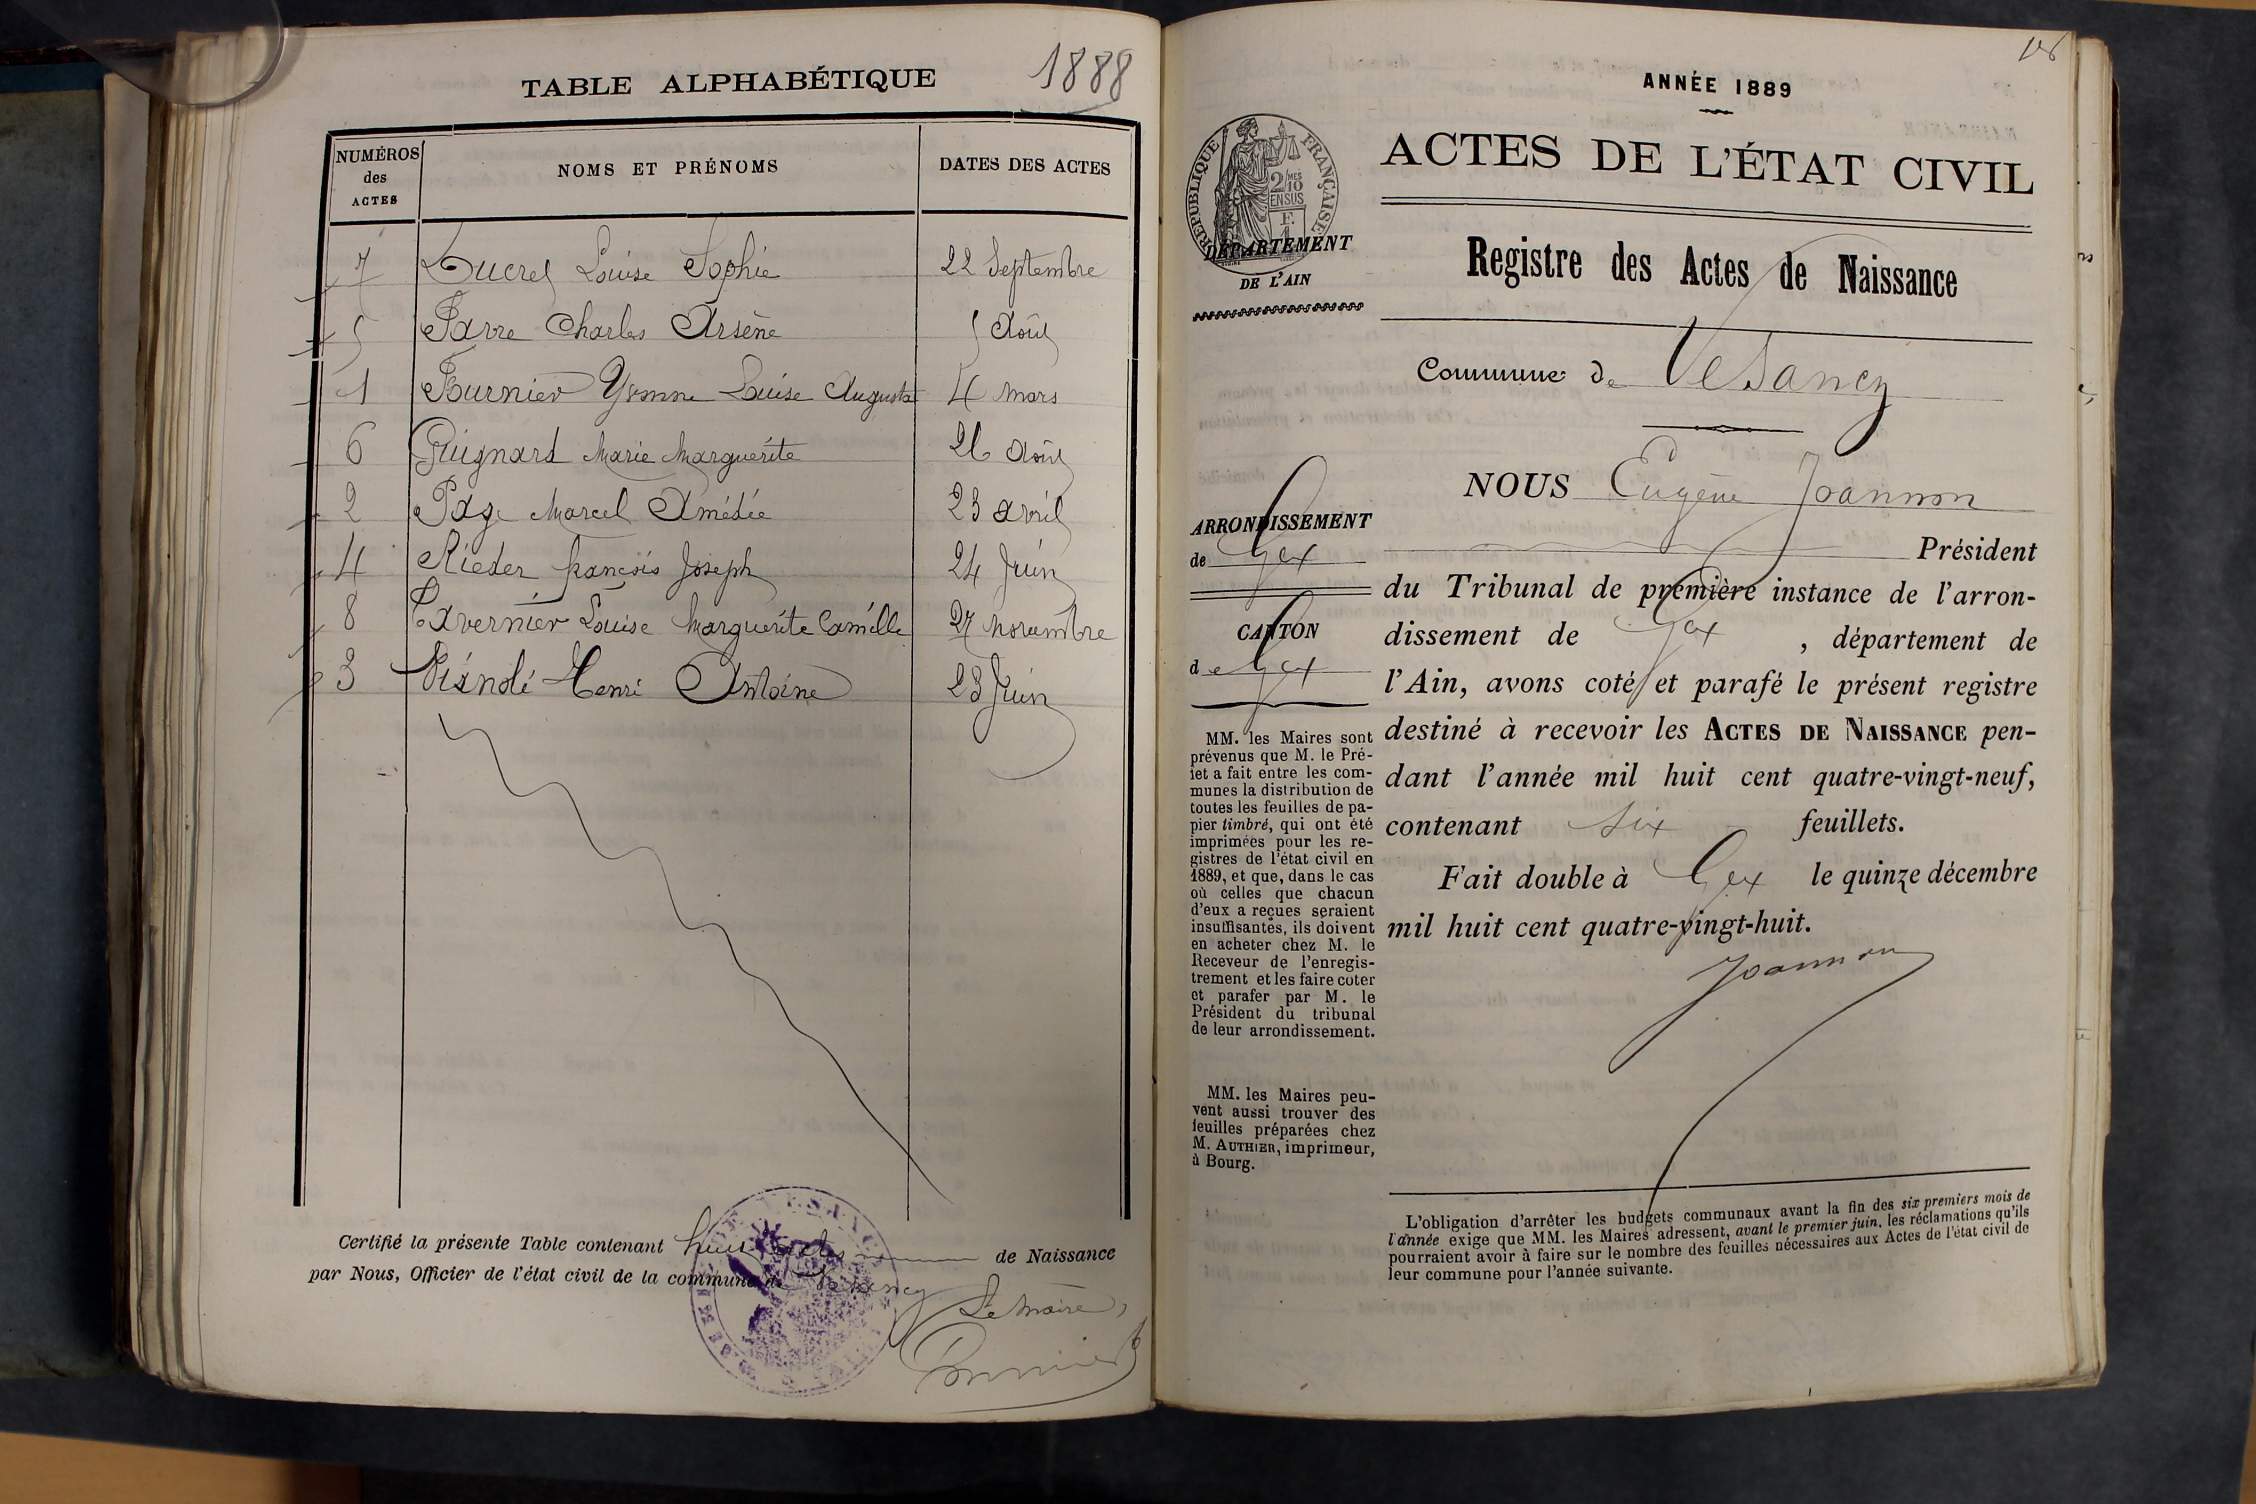 TABLE ALPHABÉTIQUE 1888
NUMÉROS des ACTES NOMS ET PRÉNOMS DATES DES ACTES
7 Ducret Louise Sophie 22 Septembre
5 Favre Charles Arsène 5 Août
1 Fournier Yvonne Louise Augusta 4 mars
6 Guignard Marie Marguerite 26 Août
2 Page Marcel Amédée 23 avril
4 Rieder françois Joseph 24 Juin
8 Tavernier Louise Marguerite Camille 27 novembre
3 Henri Antoine 23 Juin
Certifié la présente Table contenant huit actes de Naissance
par Nous, Officier de l'état civil de la commune de Vesancy
Le Maire,
ANNÉE 1889
ACTES DE L'ÉTAT CIVIL
RÉPUBLIQUE FRANÇAISE
2/10 MES
EN SUS
DÉPARTEMENT
DE L'AIN
Registre des Actes de Naissance
Commune de Vesancy
ARRONDISSEMENT
de Gex
CANTON
de Gex
MM. les Maires sont
prévenus que M. le Pré-
fet a fait entre les com-
munes la distribution de
toutes les feuilles de pa-
pier timbré, qui ont été
imprimées pour les re-
gistres de l'état civil en
1889, et que, dans le cas
où celles que chacun
d'eux a reçues seraient
insuffisantes, ils doivent
en acheter chez M. le
Receveur de l'enregis-
trement et les faire coter
et parafer par M. le
Président du tribunal
de leur arrondissement.
MM. les Maires peu-
vent aussi trouver des
feuilles préparées chez
M. AUTHIER, imprimeur,
à Bourg.
NOUS Eugène Joannon
Président
du Tribunal de première instance de l'arron-
dissement de Gex , département de
l'Ain, avons coté et parafé le présent registre
destiné à recevoir les ACTES DE NAISSANCE pen-
dant l'année mil huit cent quatre-vingt-neuf,
contenant six feuillets.
Fait double à Gex le quinze décembre
mil huit cent quatre-vingt-huit.
Joannon
L'obligation d'arrêter les budgets communaux avant la fin des six premiers mois de
l'année exige que MM. les Maires adressent, avant le premier juin, les réclamations qu'ils
pourraient avoir à faire sur le nombre des feuilles nécessaires aux Actes de l'état civil de
leur commune pour l'année suivante.